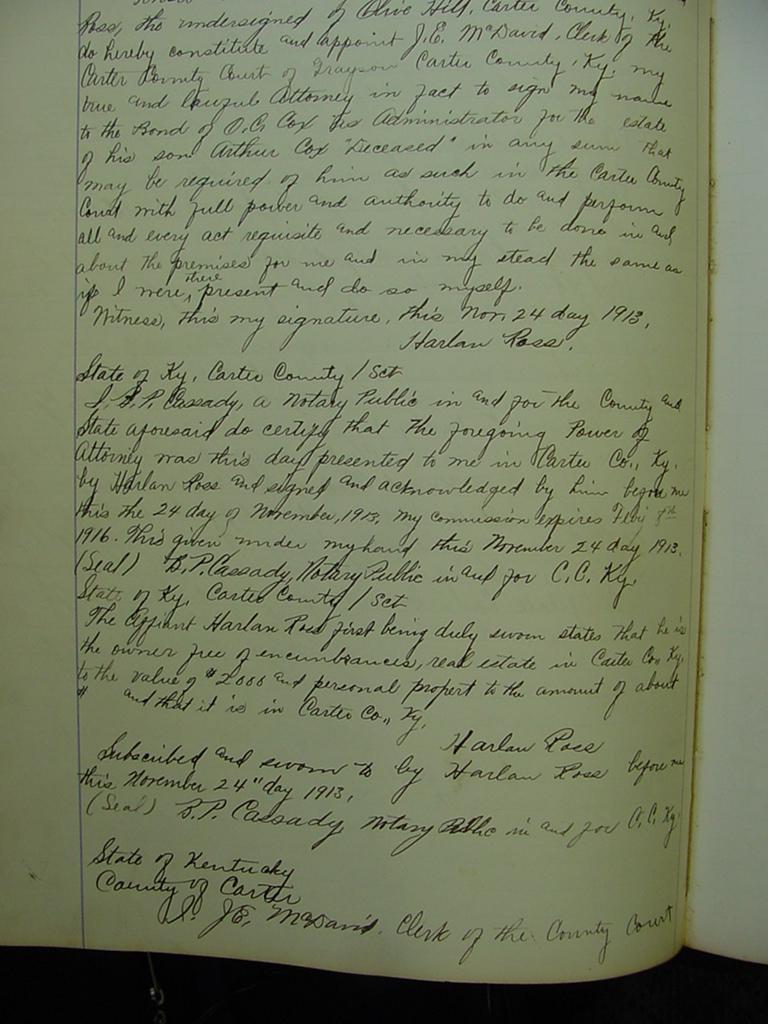 Ross, the undersigned of Olive Hill, Carter County, Ky.
do hereby constitute and appoint J.E. McDavid, Clerk of the
Carter County Court of Grayson Carter County, Ky, my
true and lawful Attorney in fact to sign my name
to the Bond of O.C. Cox as Administrator for the estate
of his son Arthur Cox "Deceased" in any sum that
may be required of him as such in the Carter County
Court with full power and authority to do and perform
all and every act requisite and necessary to be done in and
about the premises for me and in my stead the same as
if I were there present and do so myself.
Witness, this my signature, this Nov, 24 day 1913,
Harlan Ross.
State of Ky, Carter County / Sct
I, B.P. Cassady, a Notary Public in and for the County and
State aforesaid do certify that the foregoing Power of
Attorney was this day presented to me in Carter Co., Ky.
by Harlan Ross and signed and acknowledged by him before me
this the 24 day of November, 1913, my commission expires
1916. This given under my hand this November 24 day 1913.
(Seal) B.P. Cassady, Notary Public in and for C.C. Ky.
State of Ky, Carter County / Sct
The Affiant Harlan Ross first being duly sworn states that he is
the owner free of encumbrances, real estate in Carter Co, Ky,
to the value of $2000 and personal propert to the amount of about
$ and that it is in Carter Co., Ky,
Harlan Ross
Subscribed and sworn to by Harlan Ross before me
this November 24" day 1913,
(Seal) B.P. Cassady Notary Public in and for C.C. Ky.
State of Kentucky
County of Carter
I. J.E. McDavid, Clerk of the County Court